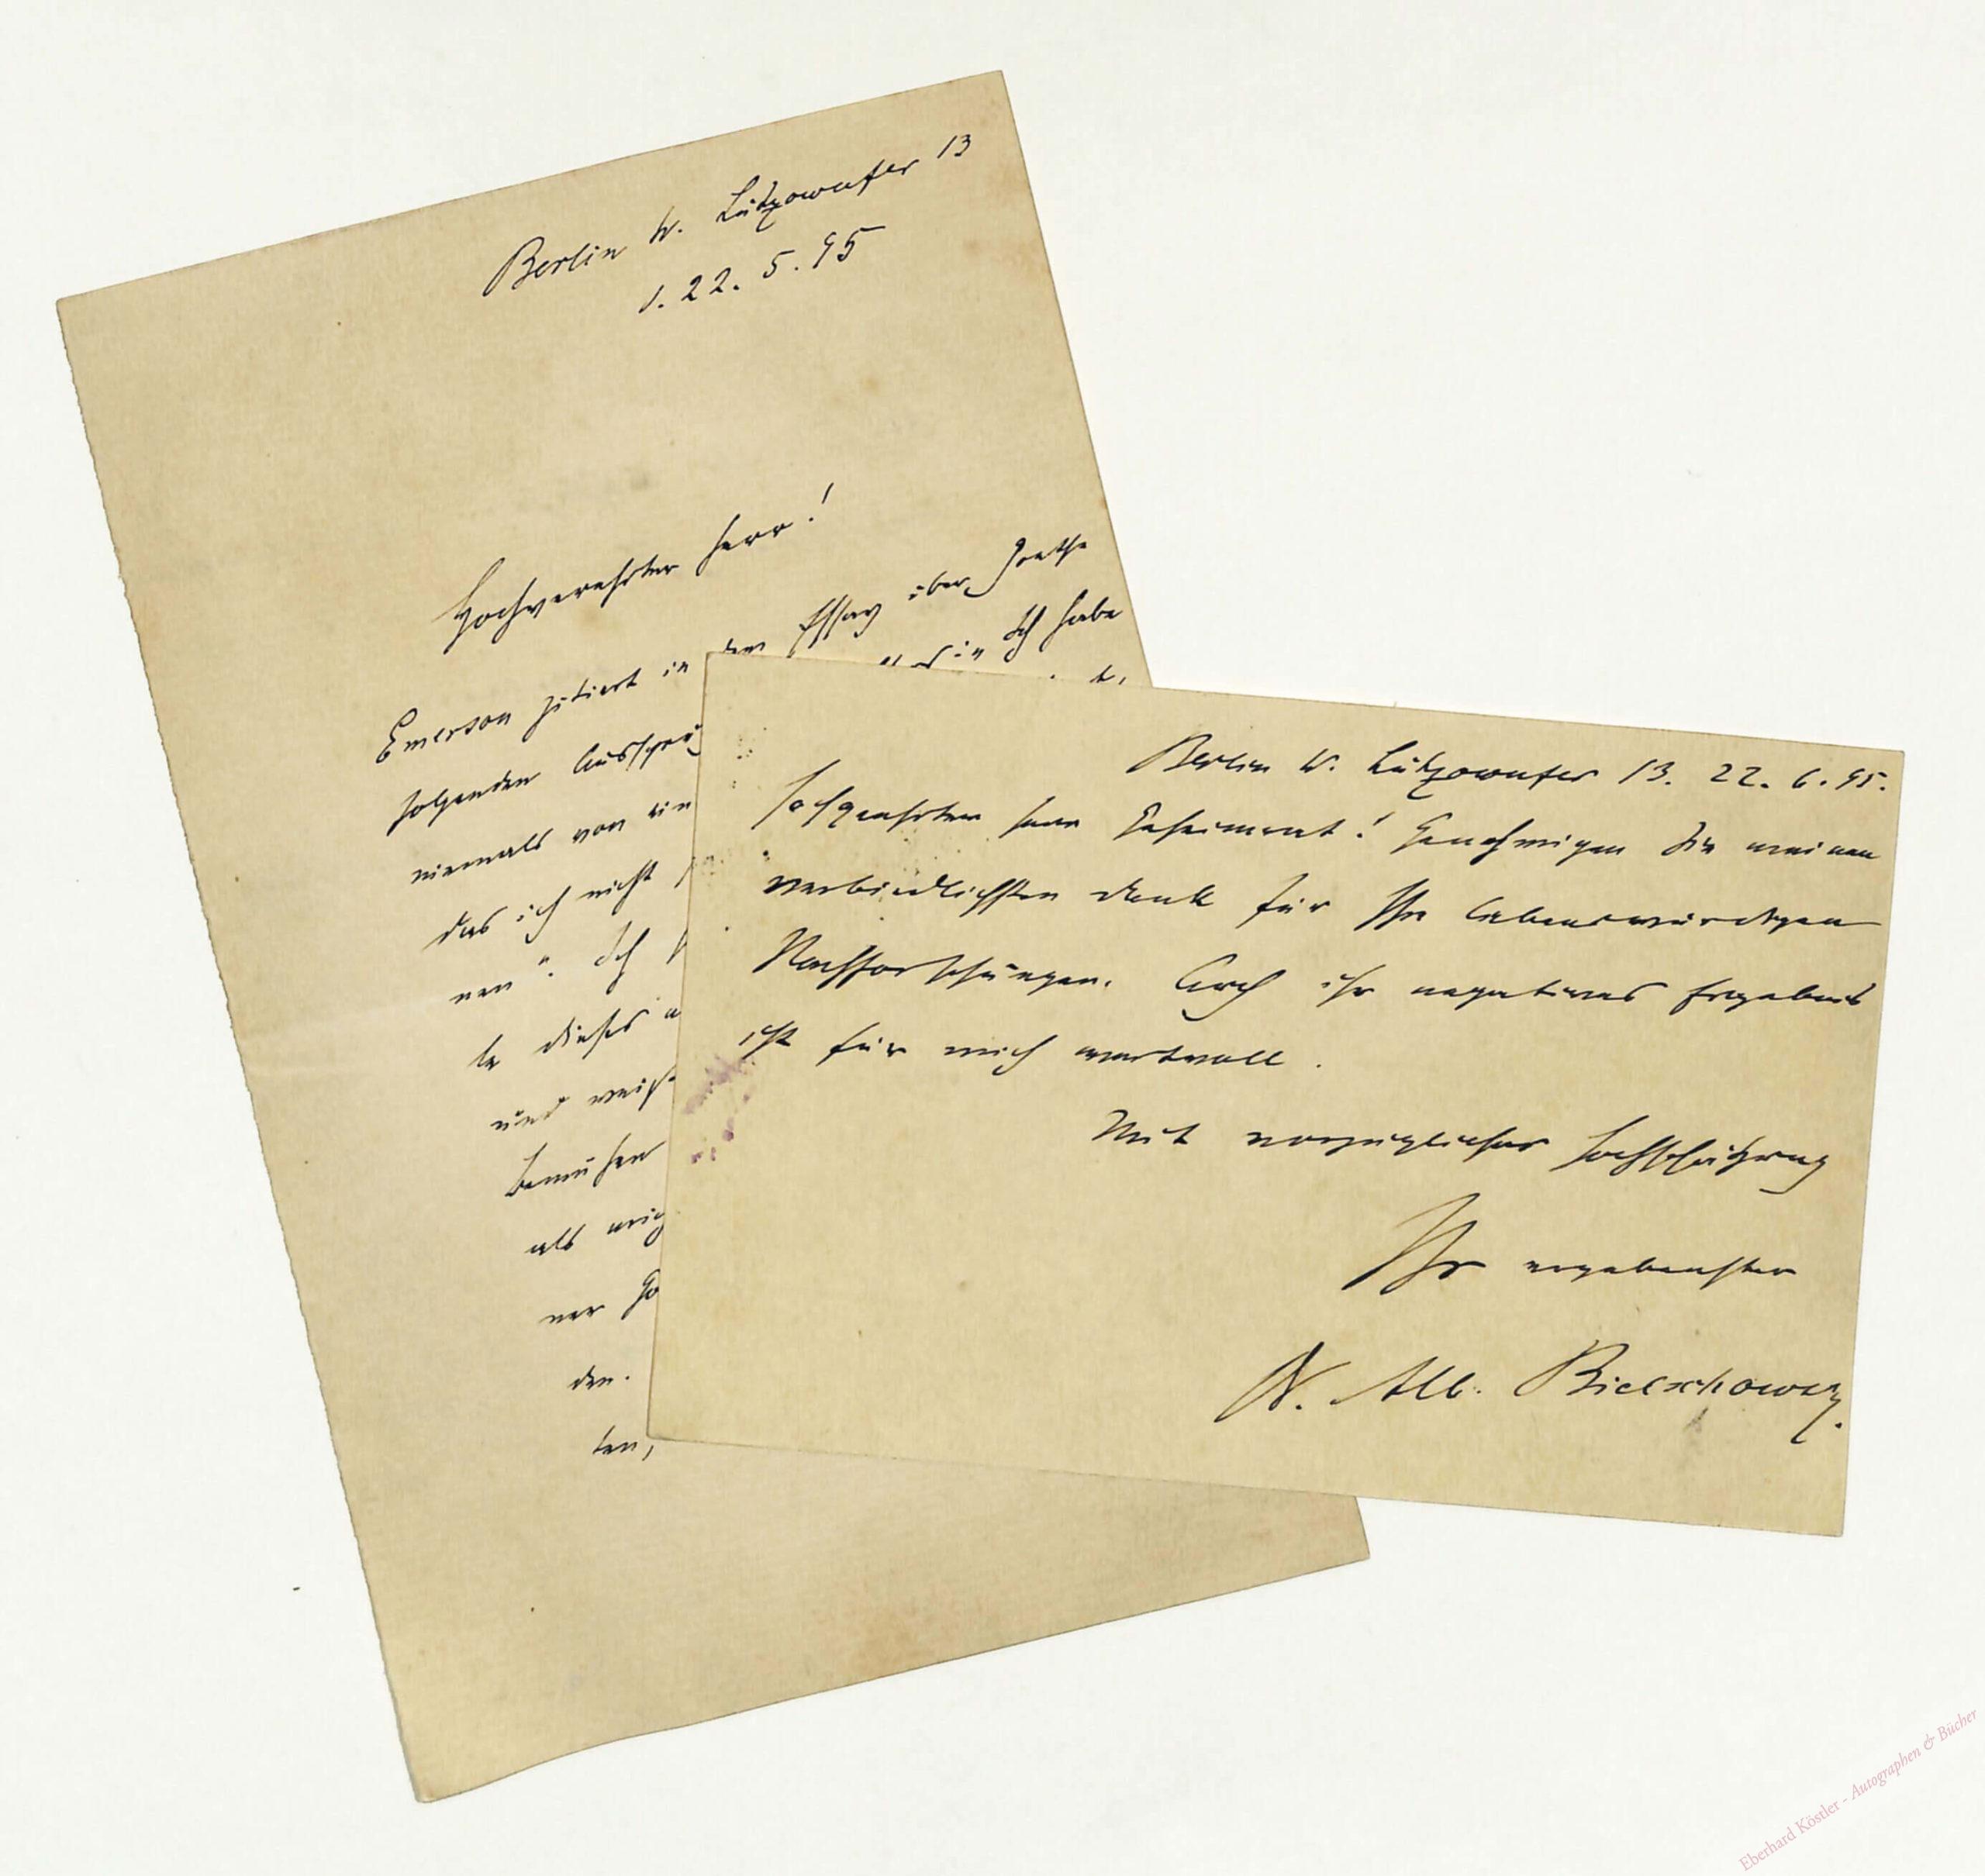 Berlin W. Lützowufer 13
d. 22. 5. 95
Hochverehrter Herr!
Emerson zitiert in dem Essay über Goethe
folgenden Ausspru
Ich habe
niemals von ein
das ich nicht
nen". Ich
le dieses
und weiß
bemühen
als
ner Go
den.
ten,
Berlin W. Lützowufer 13. 22. 6. 95.
Hochgeehrter Herr Geheimrat! Genehmigen Sie meinen
verbindlichsten Dank für Ihre liebenswürdigen
Nachforschungen. Auch ihr negatives Ergebnis
ist für mich wertvoll.
Mit vorzüglicher Hochschätzung
Ihr ergebenster
Dr. Alb. Bielschowsky.
Eberhard Köstler - Autographen & Bücher